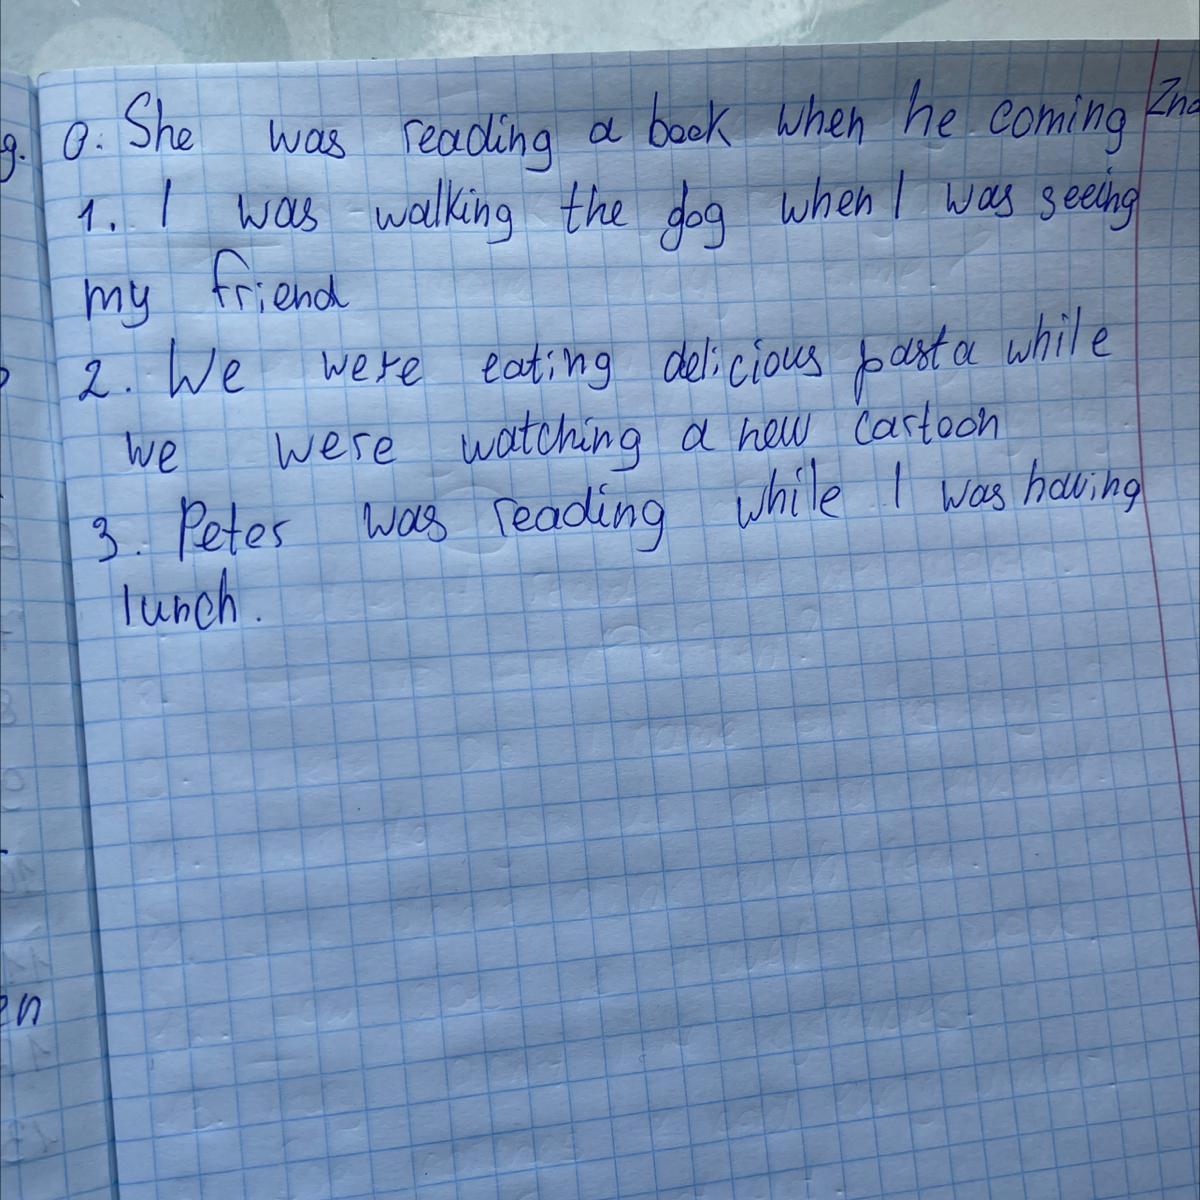 g. 0. She was reading a book when he coming
1. I was walking the dog when I was seeing
my friend
2. We were eating delicious pasta while
we were watching a new cartoon
3. Peter was reading while I was having
lunch.
en